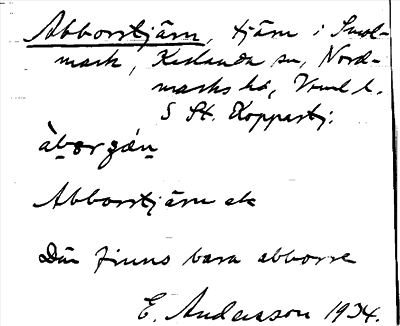 Abborrtjärn, tjärn i Smol-
mark, Karlanda sn, Nord-
marks hd, Vrml l.
S St. Koppartj.
àbərçǽn
Abborrtjärn ek
Där finns bara abborre
E. Andersson 1934.